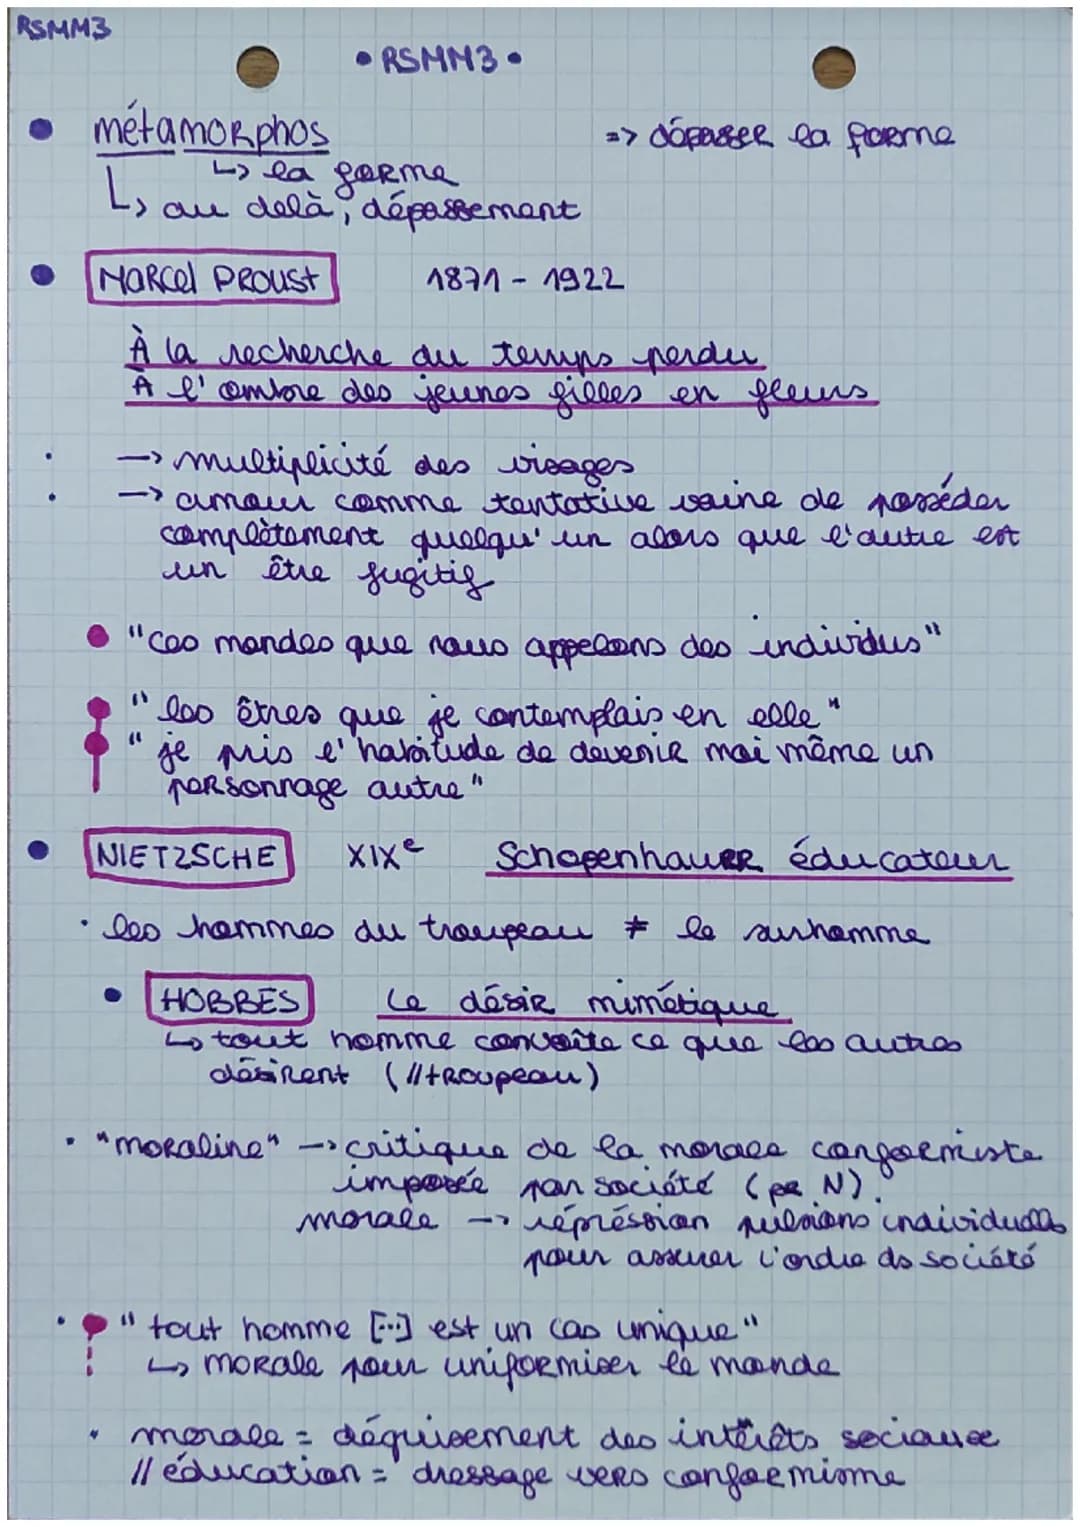 RSMM3
• RSMM3 •
métamorphos => dépasser la forme
↳ la forme
↳ au delà, dépassement
MARCEL PROUST 1871 - 1922
À la recherche du temps perdu
À l'ombre des jeunes filles en fleurs
→ multiplicité des visages
→ amour comme tentative vaine de posséder
complètement quelqu'un alors que l'autre est
un être fugitif
"ces mondes que nous appelons des individus"
"les êtres que je contemplais en elle"
"je pris l'habitude de devenir moi même un
personnage autre"
NIETZSCHE XIXe Schopenhauer éducateur
· les hommes du troupeau ≠ le surhomme
• HOBBES Le désir mimétique
↳ tout homme convoite ce que les autres
désirent (//troupeau)
• "moraline" → critique de la morale conformiste
imposée par société (pr N).
morale → répréssion pulsions individuells
pour assurer l'ordre ds société
• "tout homme [...] est un cas unique"
↳ morale pour uniformiser le monde
• morale = déguisement des intêrêts sociaux
// éducation = dressage vers conformisme